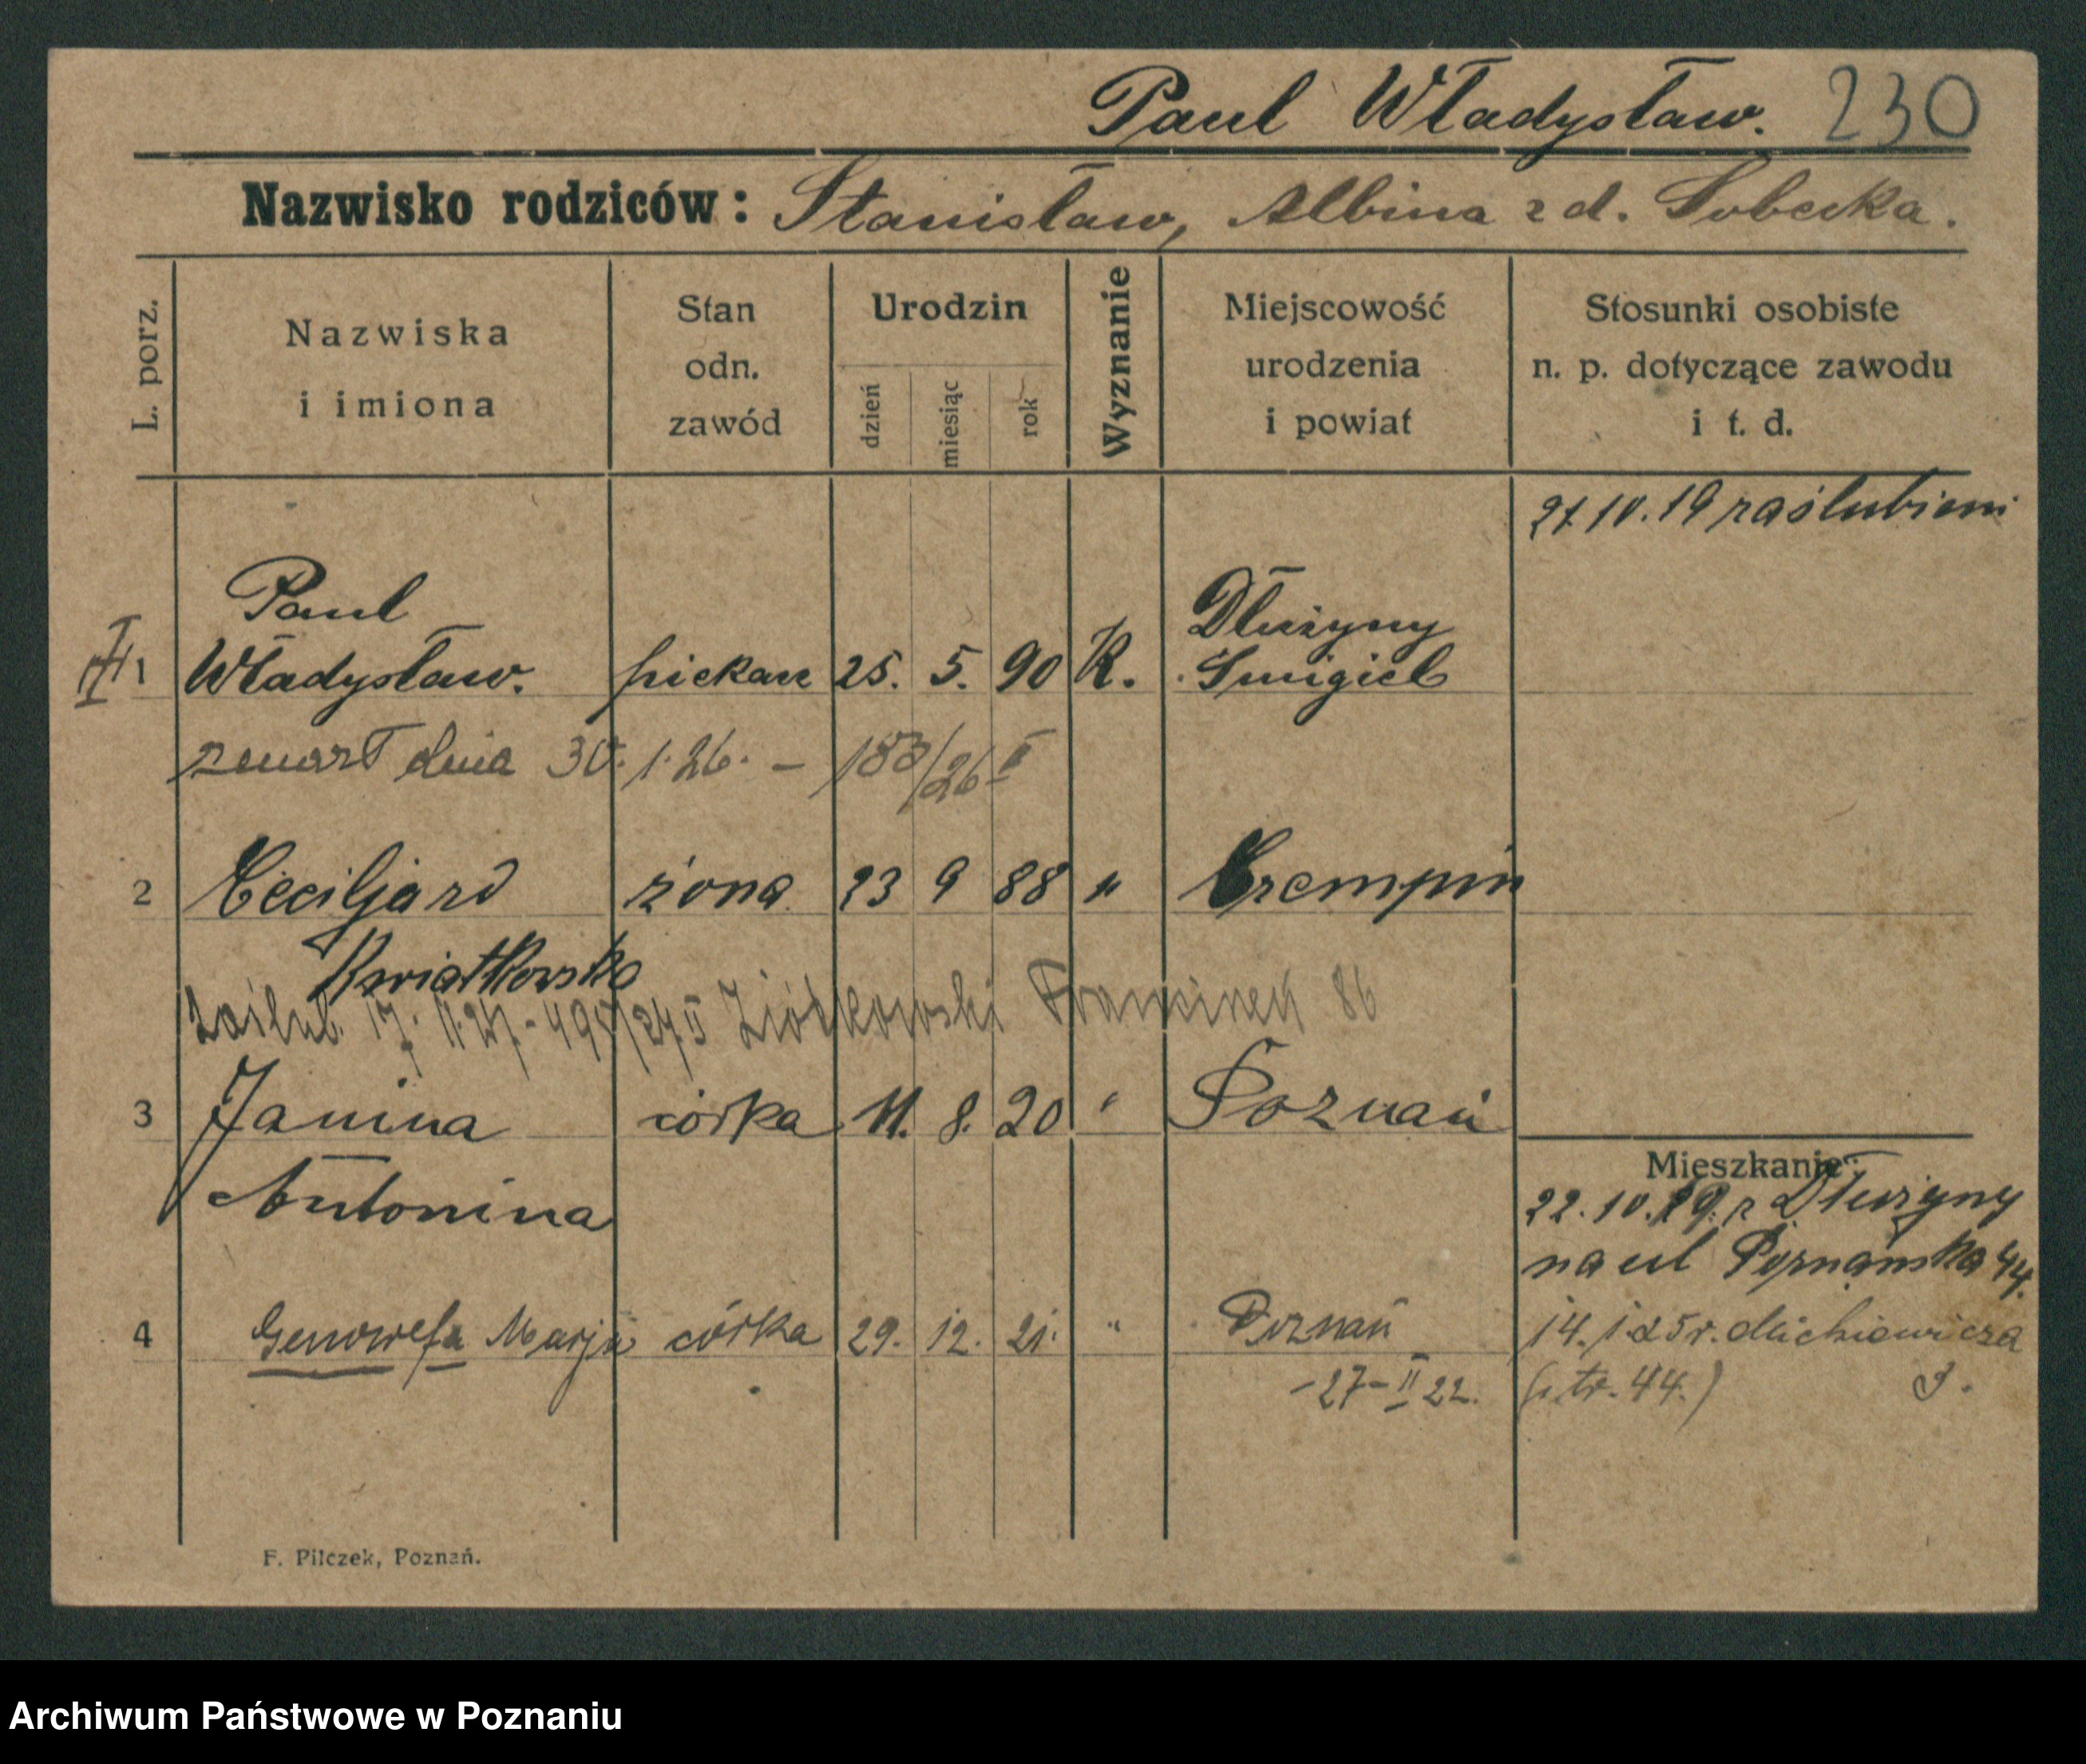 Paul Władysław. 230
Nazwisko rodziców: Stanisław, Albina z d. Sobecka.
L. porz.
Nazwiska
i imiona
Stan
odn.
zawód
Urodzin
dzień
miesiąc
rok
Wyznanie
Miejscowość
urodzenia
i powiat
Stosunki osobiste
n. p. dotyczące zawodu
i t. d.
10.19 zaślubieni
Paul Dłużyny
1 Władysław. piekarz 25. 5. 90 K. Śmigiel
zmarł dnia 30. 1. 26. – 183/26 II
2 Cecilja zd żona 23 9 88 " Czempiń
Kwiatkowska
zaślub. 17. 11. 27 - II Ziółkowski Franciszek 86
3 Janina córka 11. 8. 20 " Poznań
Antonina
Mieszkanie:
22.10.19. z Dłużyny
na ul Poznańska 44.
4 Genowefa Marja córka 29. 12. 21. " Poznań
-27-II 22.
14. 1 25 r. Mickiewicza
(str. 44.) 9.
F. Pilczek, Poznań.
Archiwum Państwowe w Poznaniu